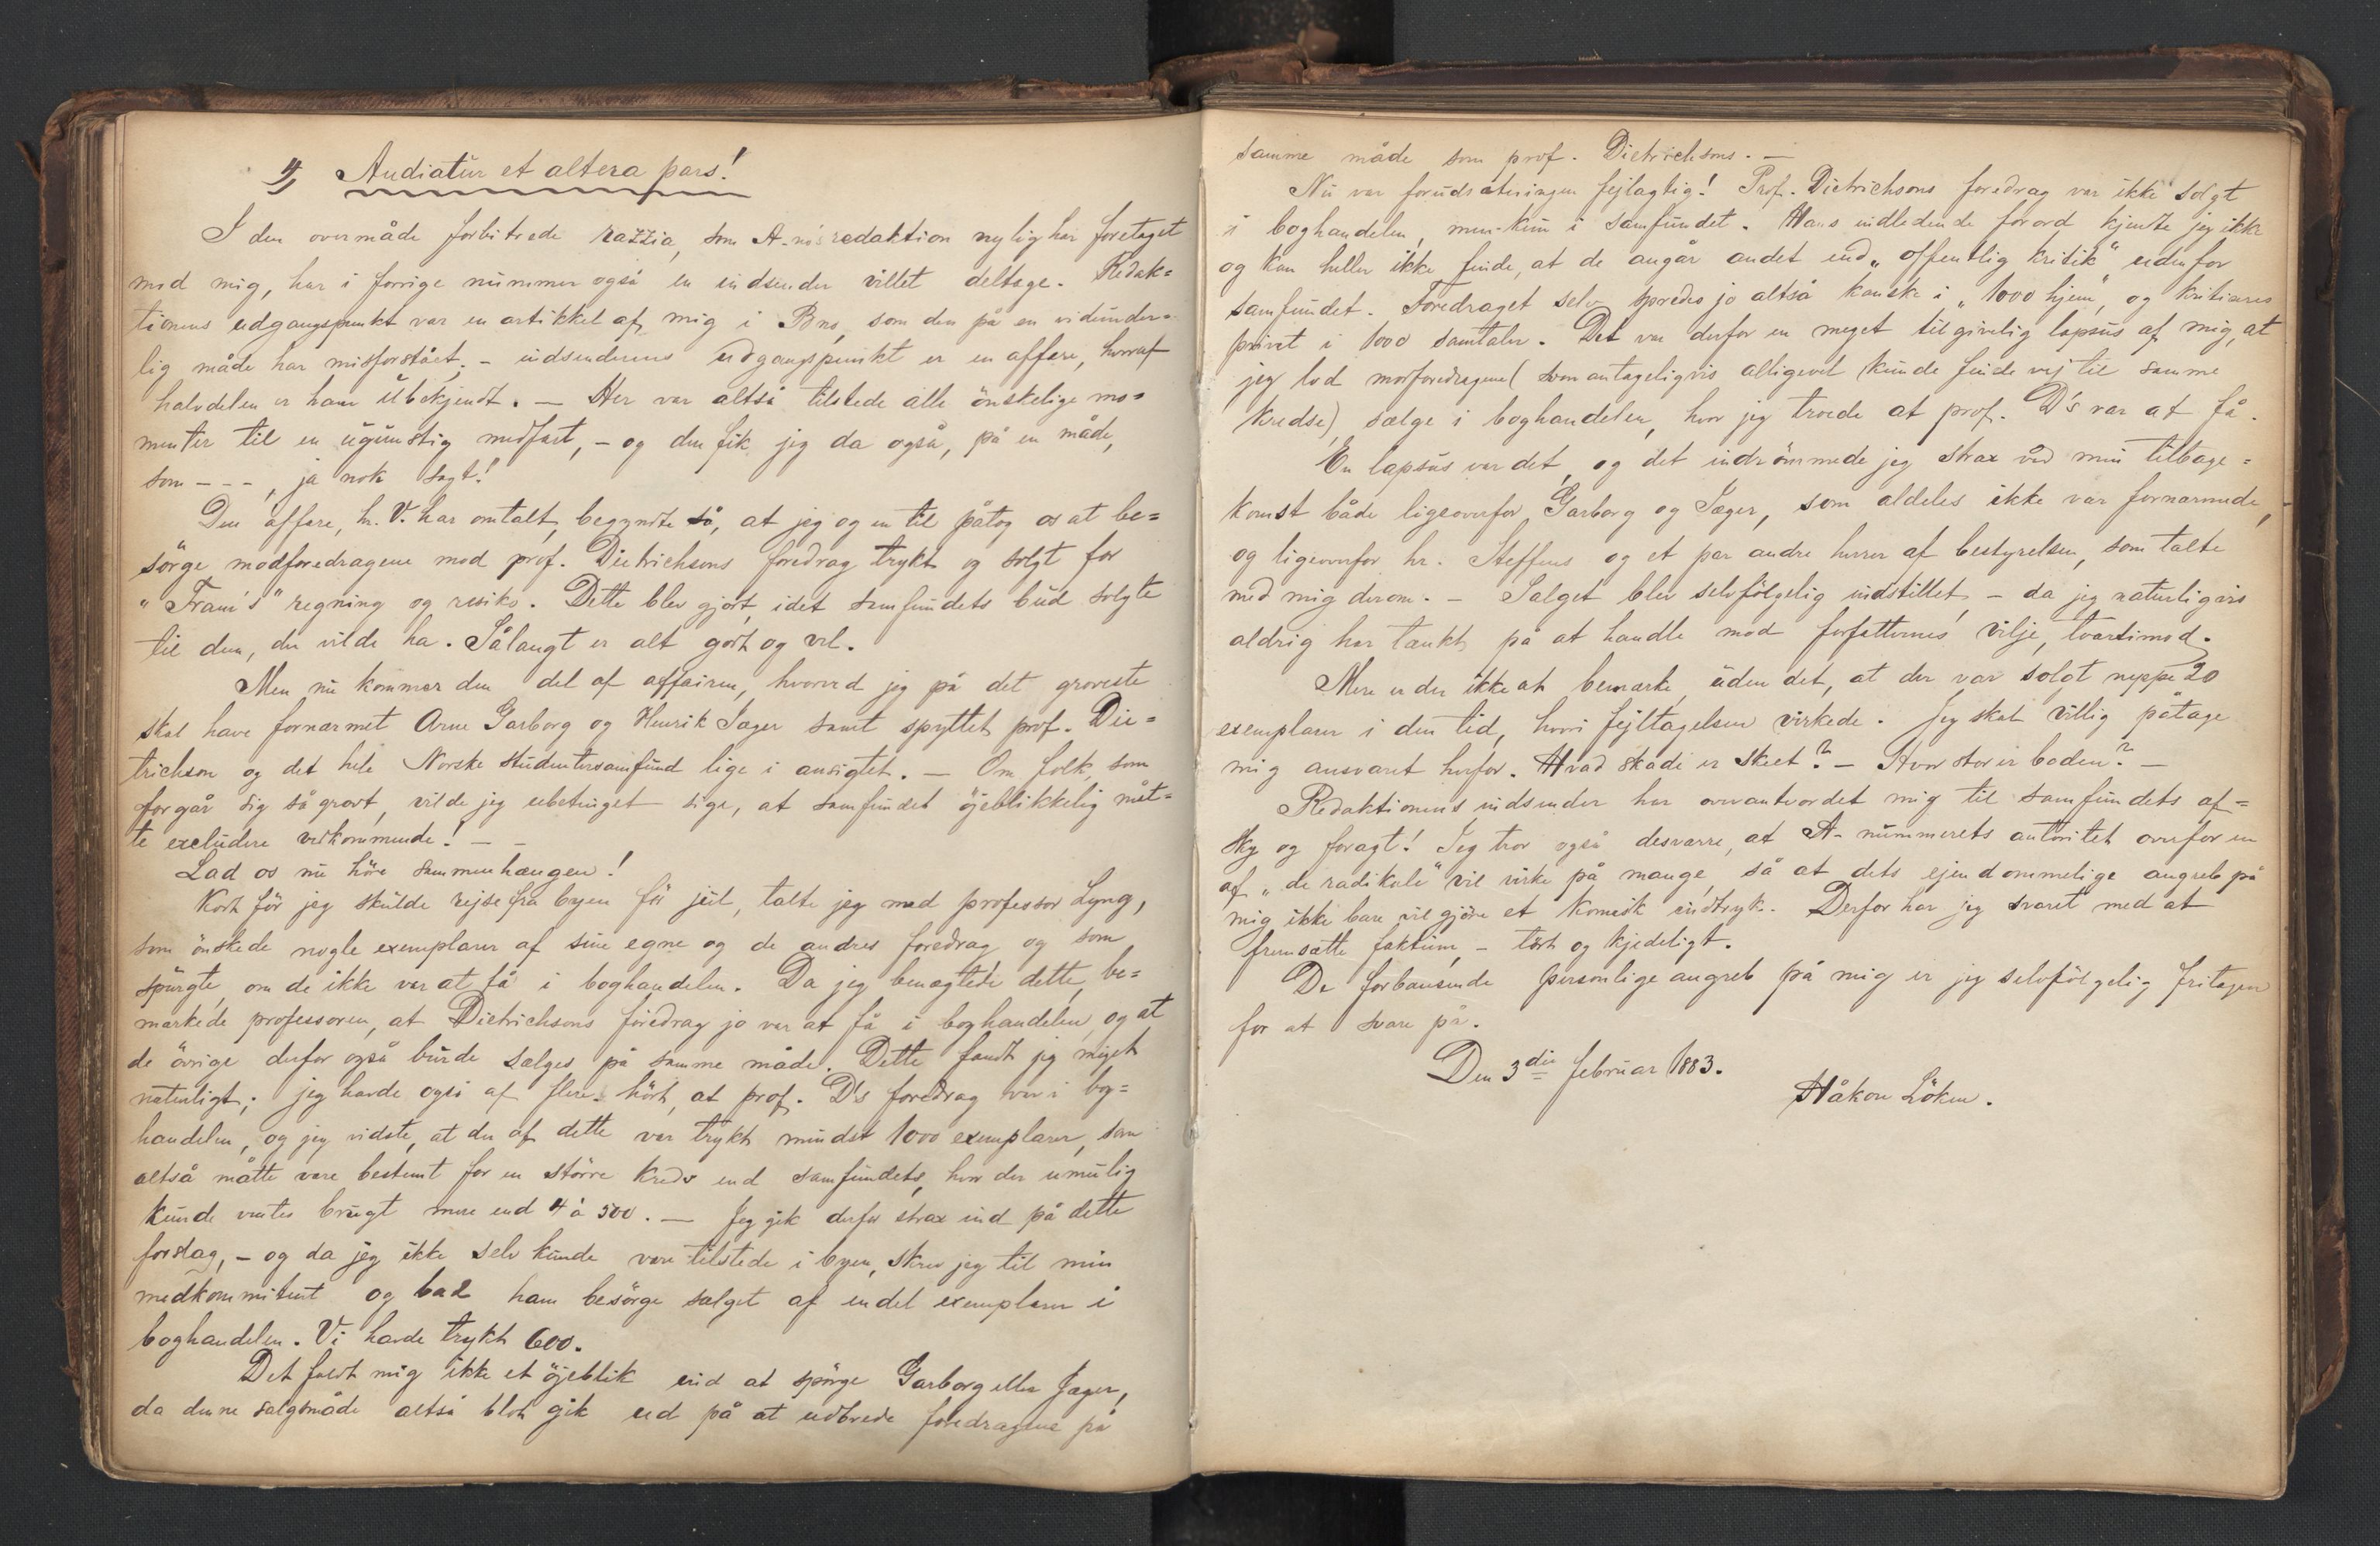 4) Audiatur et altera pars!
I den overmåde forbitrede razzia, som A-no's redaktion nylig har foretaget
mod mig, har i forrige nummer også en indsender villet deltage. Redak=
tionens udgangspunkt var en artikkel af mig i Bno, som den på en vidunder=
lig måde har misforstået; - indsenderens udgangspunkt er en affere, hvoraf
halvdelen er ham übekjendt. — Her var altså tilstede alle önskelige mo=
menter til en ugunstig medfart, - og den fik jeg da også, på en måde,
som - - -, ja nok sagt!
Den affere, hr. V. har omtalt, begyndte så, at jeg og en til påtog os at be=
sörge modforedragene mod prof. Dietrichsons foredrag trykt og solgt for
"Fram's" regning og resiko. Dette blev gjort, idet samfundets bud solgte
til dem, der vilde ha. Sålangt er alt godt og vel.
Men nu kommer den del af affairen, hvorved jeg på det groveste
skal have fornærmet Arne Garborg og Henrik Jæger samt spyttet prof. Die=
trichson og det hele Norske Studentersamfund lige i ansigtet. — Om folk, som
forgår sig så grovt, vilde jeg ubetinget sige, at samfundet öjeblikkelig måt=
te excludere vedkommende! — —
Lad os nu höre sammenhængen!
Kort för jeg skulde rejse fra byen för jul, talte jeg med professor Lyng,
som önskede nogle exemplarer af sine egne og de andres foredrag og som
spurgte, om de ikke var at få i boghandelen. Da jeg benægtede dette, be=
mærkede professoren, at Dietrichsons foredrag jo var at få i boghandelen, og at
de övrige derfor også burde sælges på samme måde. Dette fandt jeg meget
naturligt; jeg havde også af flere hört, at prof. D's foredrag var i bog=
handelen, og jeg vidste, at der af dette var trykt mindst 1000 exemplarer, som
altså måtte være bestemt for en större kreds end samfundets, hvor der umulig
kunde ventes brugt mere end 4 à 500. — Jeg gik derfor strax ind på dette
forslag, - og da jeg ikke selv kunde være tilstede i byen, skrev jeg til min
medkommitent og bad ham besörge salget af endel exemplarer i
boghandelen. Vi havde trykt 600.
Det faldt mig ikke et öjeblik ind at spörge Garborg eller Jæger,
da denne salgsmåde altså blot gik ud på at udbrede foredragene på
samme måde som prof. Dietrichsons. —
Nu var forudsætningen fejlagtig! Prof. Dietrichsons foredrag var ikke solgt
i boghandelen, men kun i samfundet. Hans indledende forord kjendte jeg ikke
og kan heller ikke finde, at de angår andet end „offentlig kritik" udenfor
samfundet. Foredraget selv spredes jo altså kanske i „1000 hjem", og kritiseres
privat i 1000 samtaler. Det var derfor en meget tilgivelig lapsus af mig, at
jeg lod modforedragene (som antageligvis alligevel kunde finde vej til samme
kredse) sælge i boghandelen, hvor jeg troede at prof. D's var at få.
En lapsus var det, og det indrömmede jeg strax ved min tilbage=
komst både ligeoverfor Garborg og Jæger, som aldeles ikke var fornærmede,
og ligeoverfor hr. Steffens og et par andre herrer af bestyrelsen, som talte
med mig derom. - Salget blev selvfölgelig indstillet - da jeg naturligvis
aldrig har tænkt på at handle mod forfatternes vilje, tværtimod.
Mere er der ikke at bemærke, uden det, at der var solgt neppe 20
exemplarer i den tid, hvori fejltagelsen virkede. Jeg skal villig påtage
mig ansvaret herfor. Hvad skade er skeet? — Hvor stor er boden? —
Redaktionens indsender har overantvordet mig til samfundets af=
sky og foragt! Jeg tror også desværre, at A-nummerets autoritet overfor en
af „de radikale" vil virke på mange, så at dets ejendommelige angreb på
mig ikke bare vil gjöre et komisk indtryk. Derfor har jeg svaret med at
fremsætte faktum, - tört og kjedeligt.
De forbausende personlige angreb på mig er jeg selvfölgelig fritagen
for at svare på.
Den 3die februar 1883.
Håkon Löken.